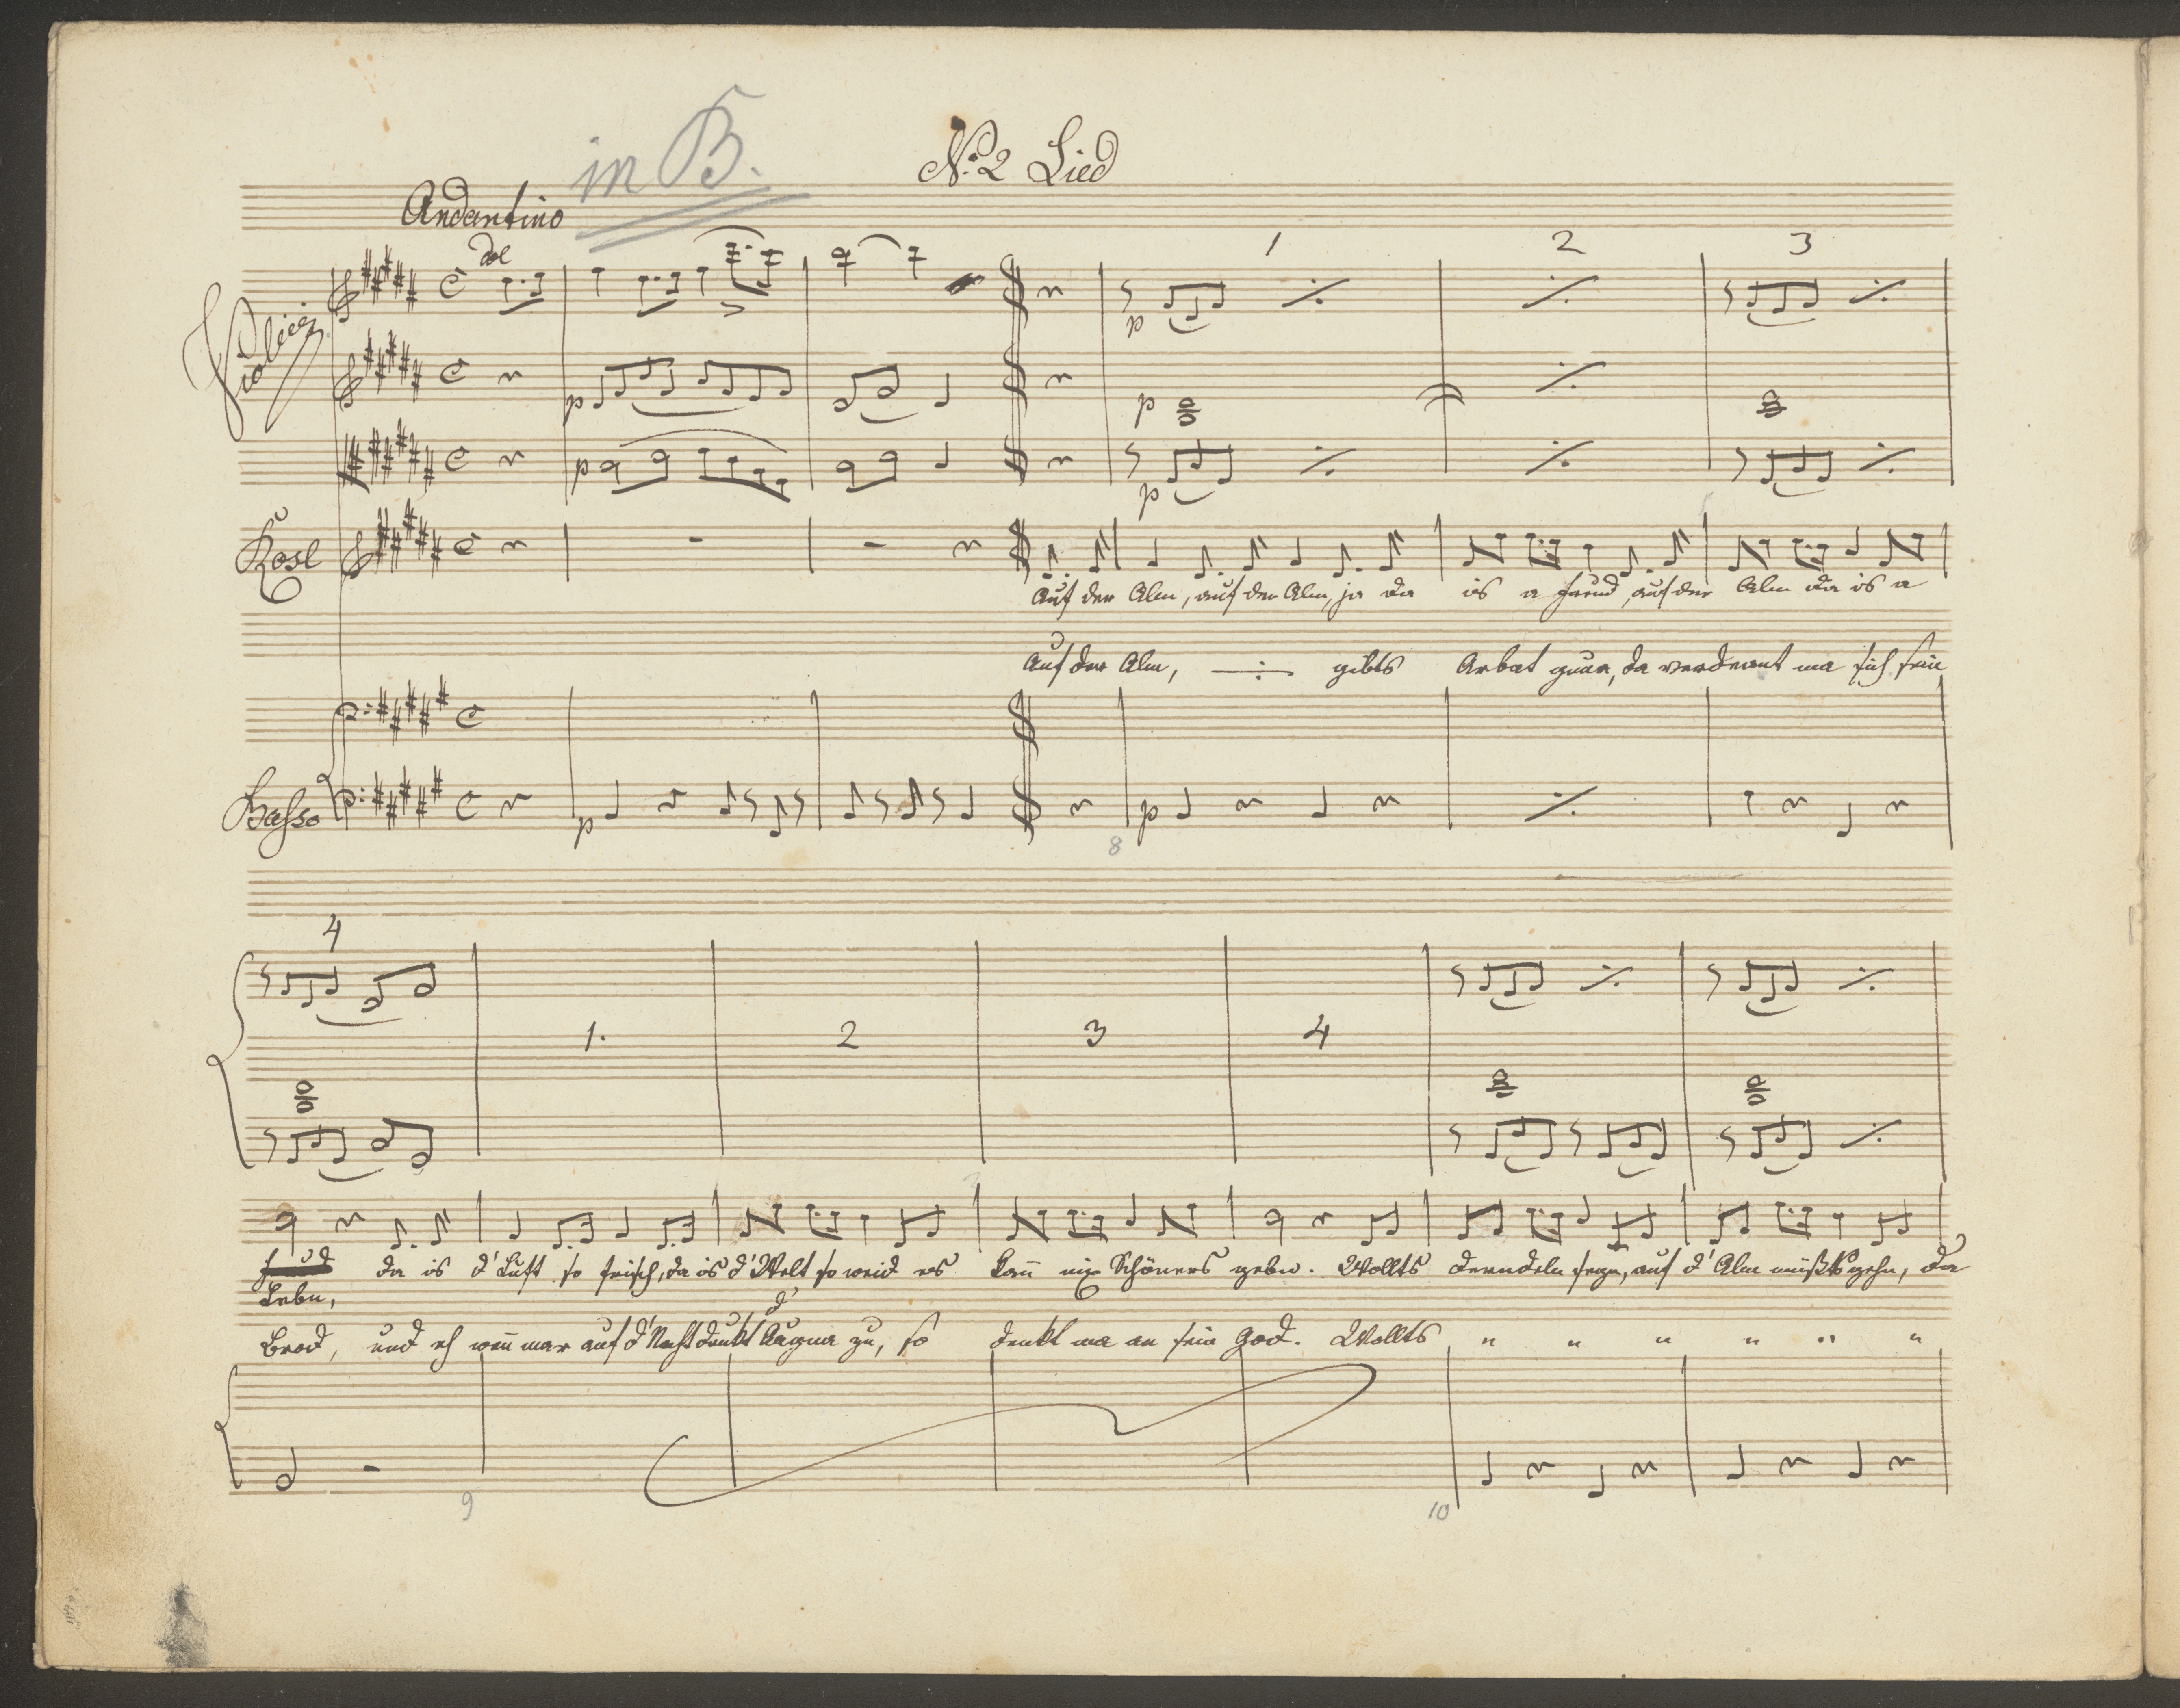 in B.
No. 2 Lied
Andantino
dol
1 2 3
Violini
p
p
p p
p p
Rosl
Auf der Alm, auf der Alm, ja da is a Freud, auf der Alm da is a
Auf der Alm, gibts Arbat gnua, da verdeant ma sich sein
Basso
p p
8
4
1. 2 3 4
da is d' Luft so frisch, da is d' Welt so weid es kann nix Schöners gebn. Wollts Derndeln segn, auf d' Alm müßts gehn, da
Lebn,
d'
Brod, und eh wenn mar auf d' Nacht druckt Augna zu, so denkt ma an sein God. Wollts " " " " " "
9 10